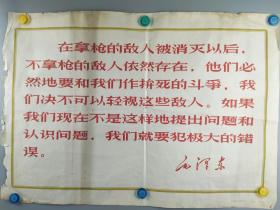 在拿枪的敌人被消灭以后，
不拿枪的敌人依然存在，他们必
然地要和我们作拚死的斗争，我
们决不可以轻视这些敌人。如果
我们现在不是这样地提出问题和
认识问题，我们就要犯极大的错
误。
毛泽东